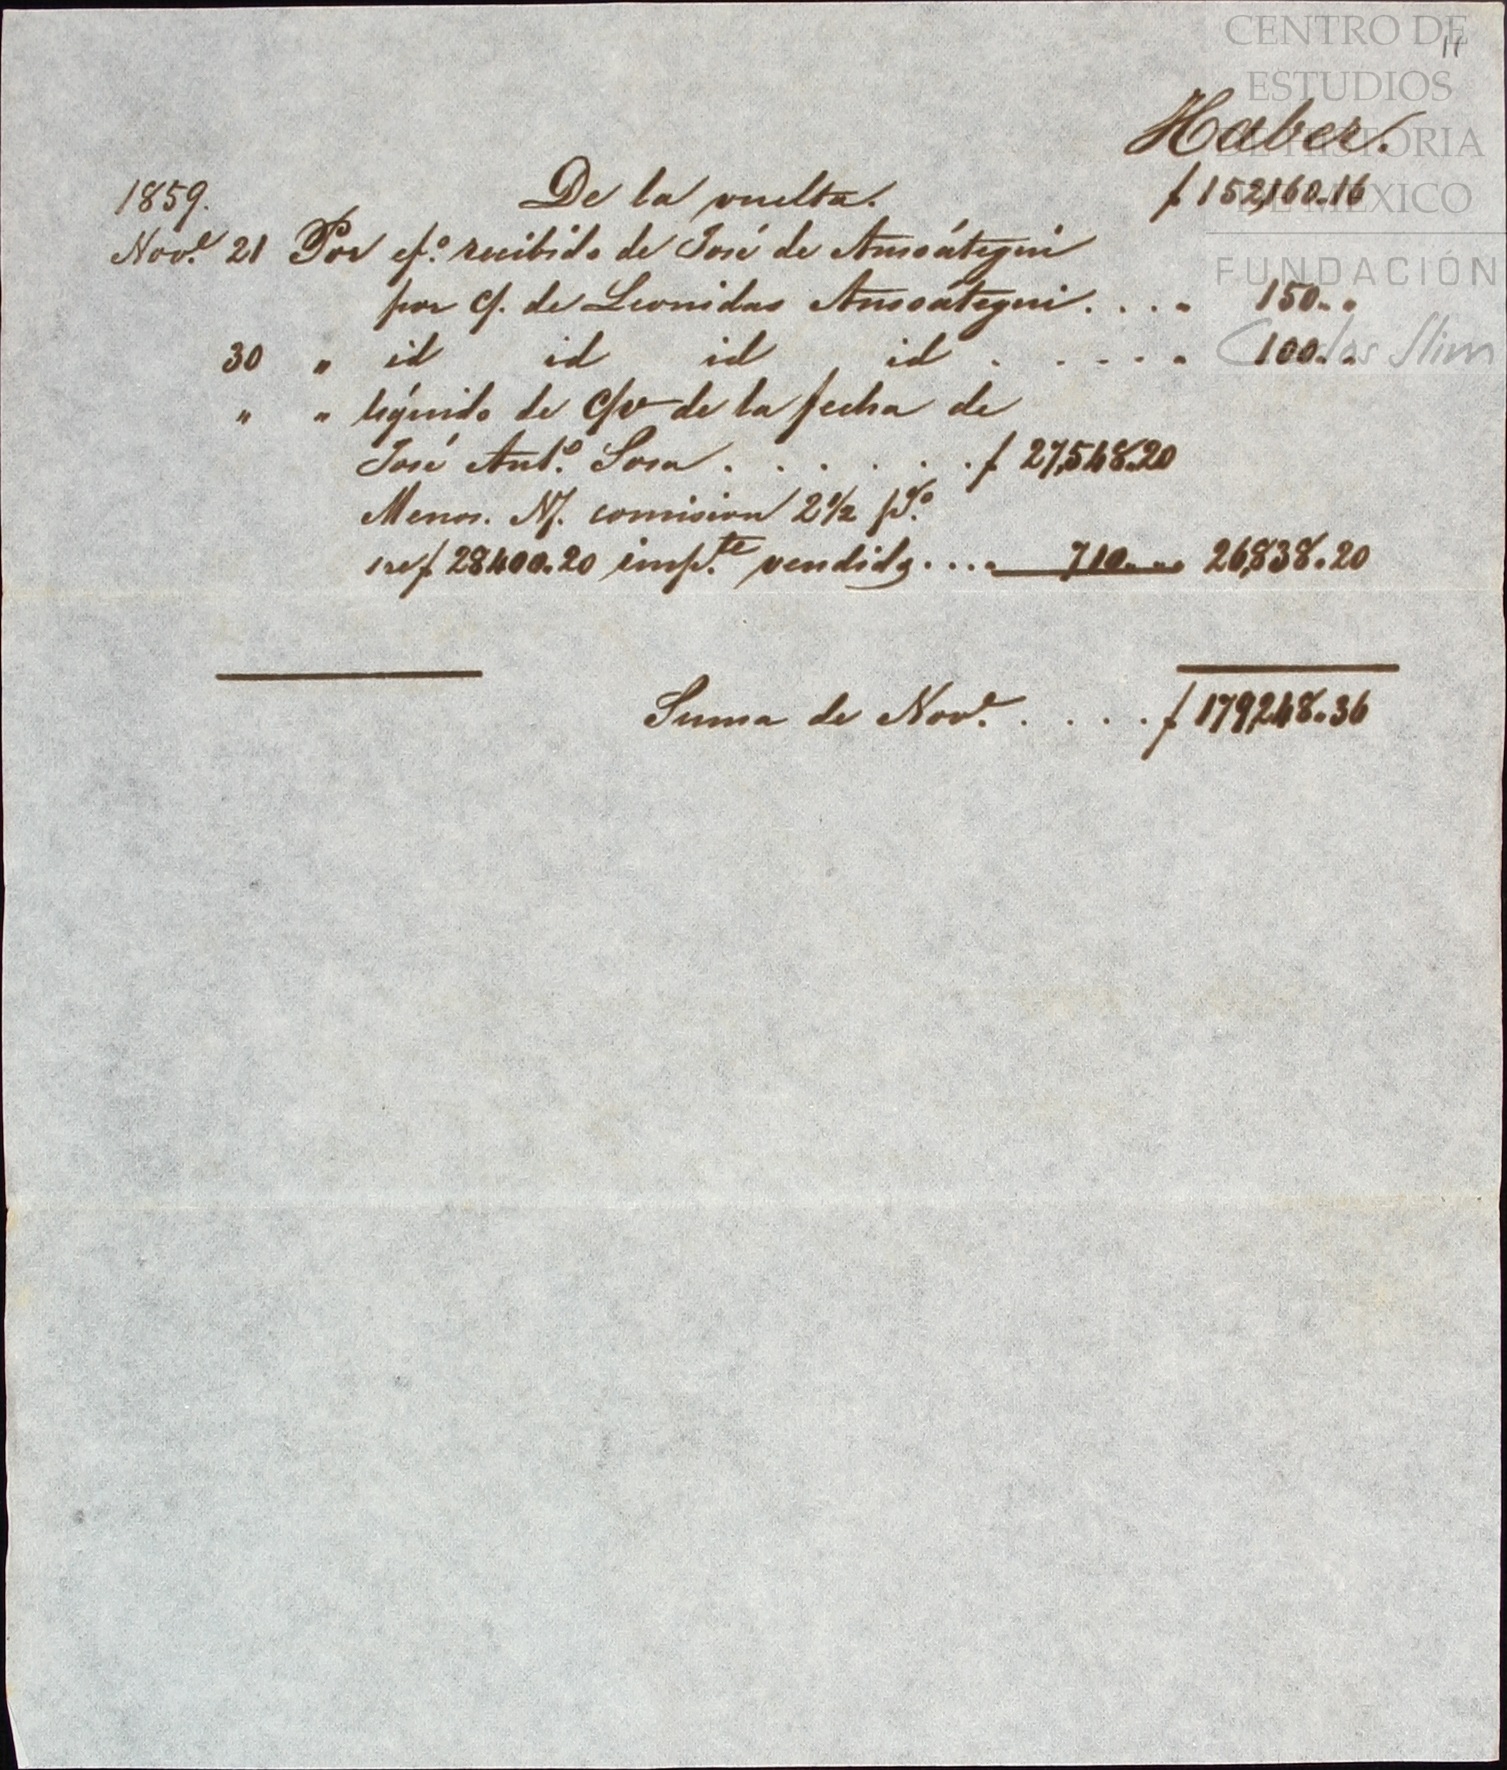 CENTRO DE
11
ESTUDIOS
DE HISTORIA
DE MÉXICO
FUNDACIÓN
Carlos Slim
Haber.
1859. De la vuelta. $ 152,160.16
Nov.e 21 Por ef.o recibido de José de Ansoátegui
por c/. de Leonidas Ansoátegui . . . . 150 . .
30 " id id id id . . . . . 100 . .
" " líquido de c/v de la fecha de
José Ant.o Sosa . . . . . . $ 27,548.20
Menos. N/. comision 2 1/2 p%
$ 28400.20 imp.te vendido . . . . 710 . . . 26,838.20
Suma de Nov.e . . . . $ 179,248.36